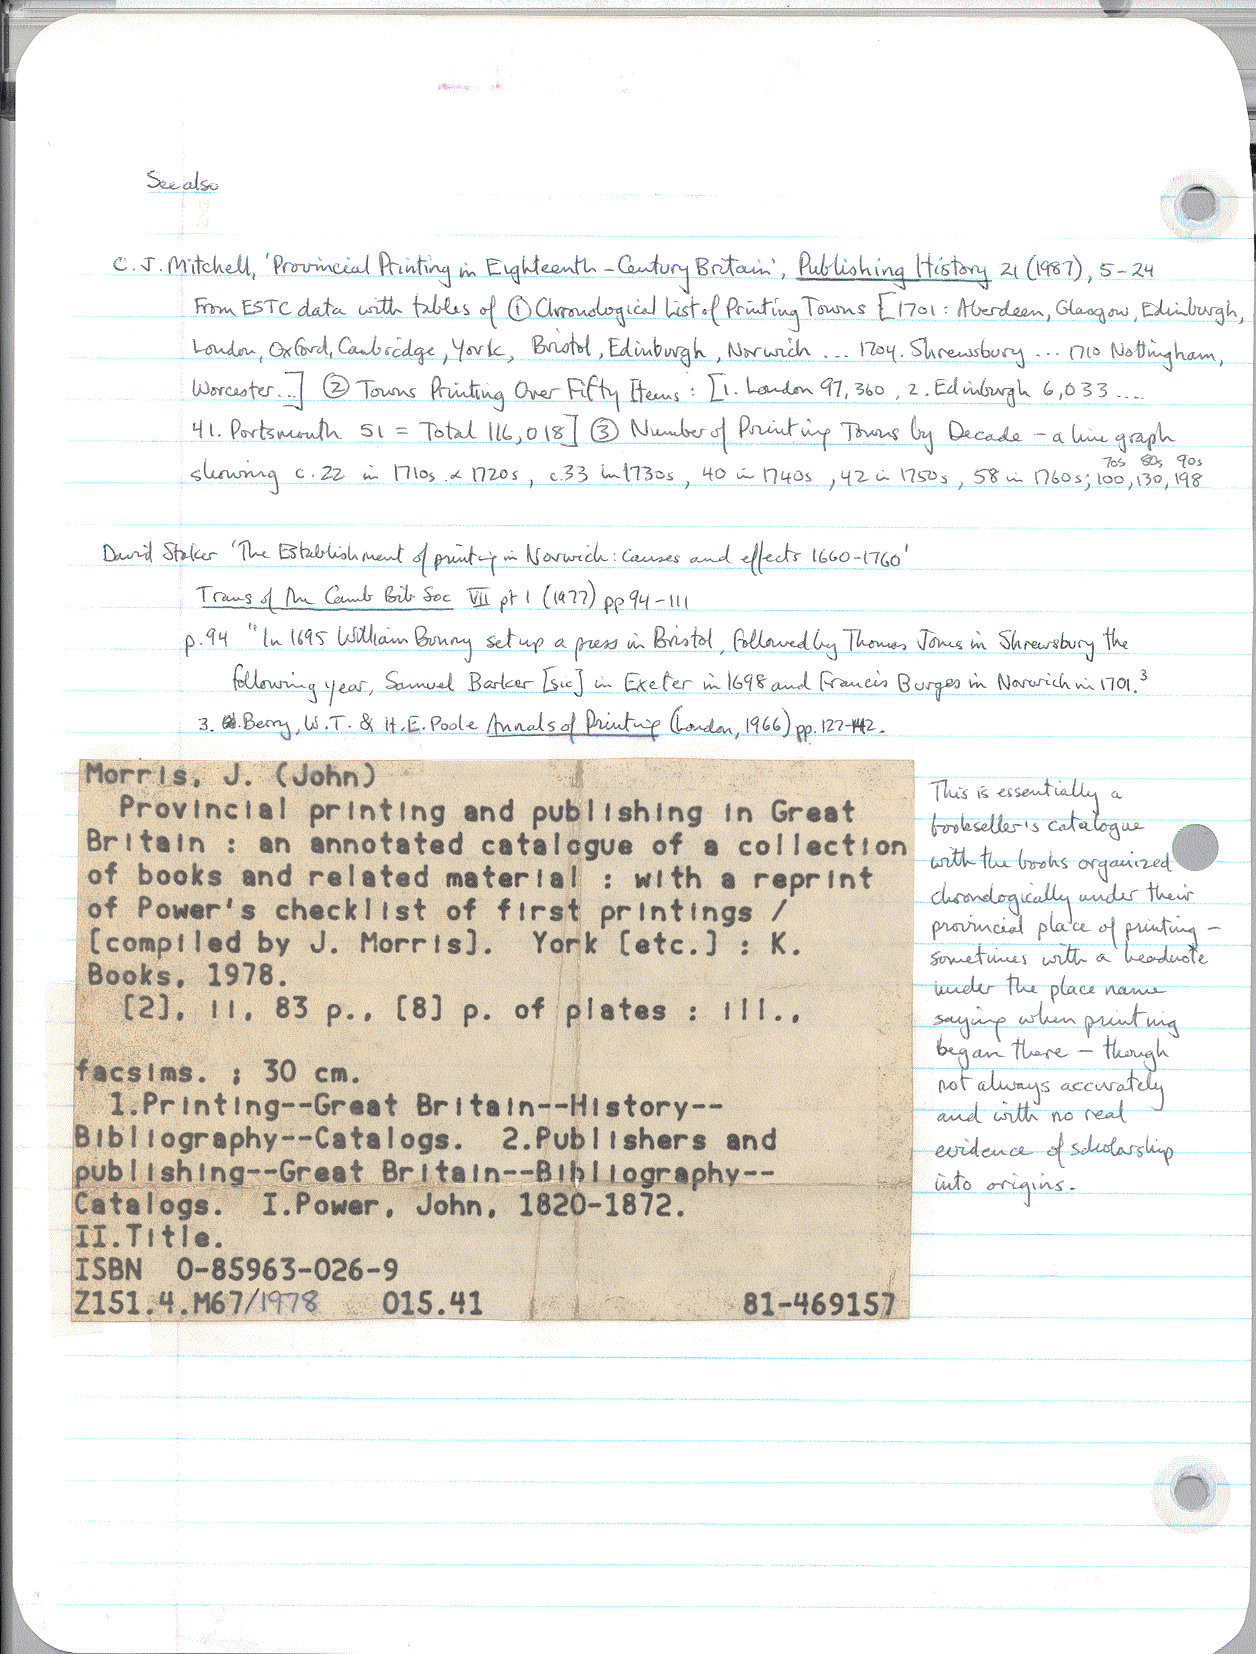 See also
C. J. Mitchell, 'Provincial Printing in Eighteenth-Century Britain', Publishing History 21 (1987), 5-24
From ESTC data with tables of ① Chronological List of Printing Towns [1701: Aberdeen, Glasgow, Edinburgh,
London, Oxford, Cambridge, York, Bristol, Edinburgh, Norwich ... 1704. Shrewsbury ... 1710 Nottingham,
Worcester...] ② Towns Printing Over Fifty Items: [1. London 97,360, 2. Edinburgh 6,033 ....
41. Portsmouth 51 = Total 116,018] ③ Number of Printing Towns by Decade - a line graph
showing c.22 in 1710s & 1720s, c.33 in 1730s, 40 in 1740s, 42 in 1750s, 58 in 1760s; 70s 100, 80s 130, 90s 198
David Stoker 'The Establishment of printing in Norwich: causes and effects 1660-1760'
Trans of the Camb Bib Soc VII pt 1 (1977) pp 94-111
p.94 "In 1695 William Bonny set up a press in Bristol, followed by Thomas Jones in Shrewsbury the
following year, Samuel Barker [sic] in Exeter in 1698 and Francis Burges in Norwich in 1701.³
3. Berry, W.T. & H.E. Poole Annals of Printing (London, 1966) pp. 127-142.
Morris, J. (John)
Provincial printing and publishing in Great
Britain : an annotated catalogue of a collection
of books and related material : with a reprint
of Power's checklist of first printings /
[compiled by J. Morris]. York [etc.] : K.
Books, 1978.
[2], ii, 83 p., [8] p. of plates : ill.,
facsims. ; 30 cm.
1.Printing--Great Britain--History--
Bibliography--Catalogs. 2.Publishers and
publishing--Great Britain--Bibliography--
Catalogs. I.Power, John, 1820-1872.
II.Title.
ISBN 0-85963-026-9
Z151.4.M67/1978 015.41 81-469157
This is essentially a
bookseller's catalogue
with the books organized
chronologically under their
provincial place of printing -
sometimes with a headnote
under the place name
saying when printing
began there - though
not always accurately
and with no real
evidence of scholarship
into origins.